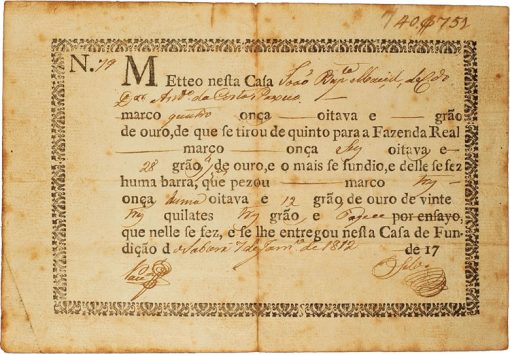 740$751
N. 79 Metteo nesta Casa João Bap.ta Maciel,
Da Costa
marco quatro onça — oitava e — grão
de ouro, de que se tirou de quinto para a Fazenda Real
— marco — onça Sey oitava e —
28 grão, de ouro, e o mais se fundio, e delle se fez
huma barra, que pezou — marco trez —
onça huma oitava e 12 grão de ouro de vinte
trez quilates trez grão, e por ensayo,
que nelle se fez, e se lhe entregou nesta Casa de Fun-
dição d Sabará 7 de Janr.o de 1812 de 17
Silva